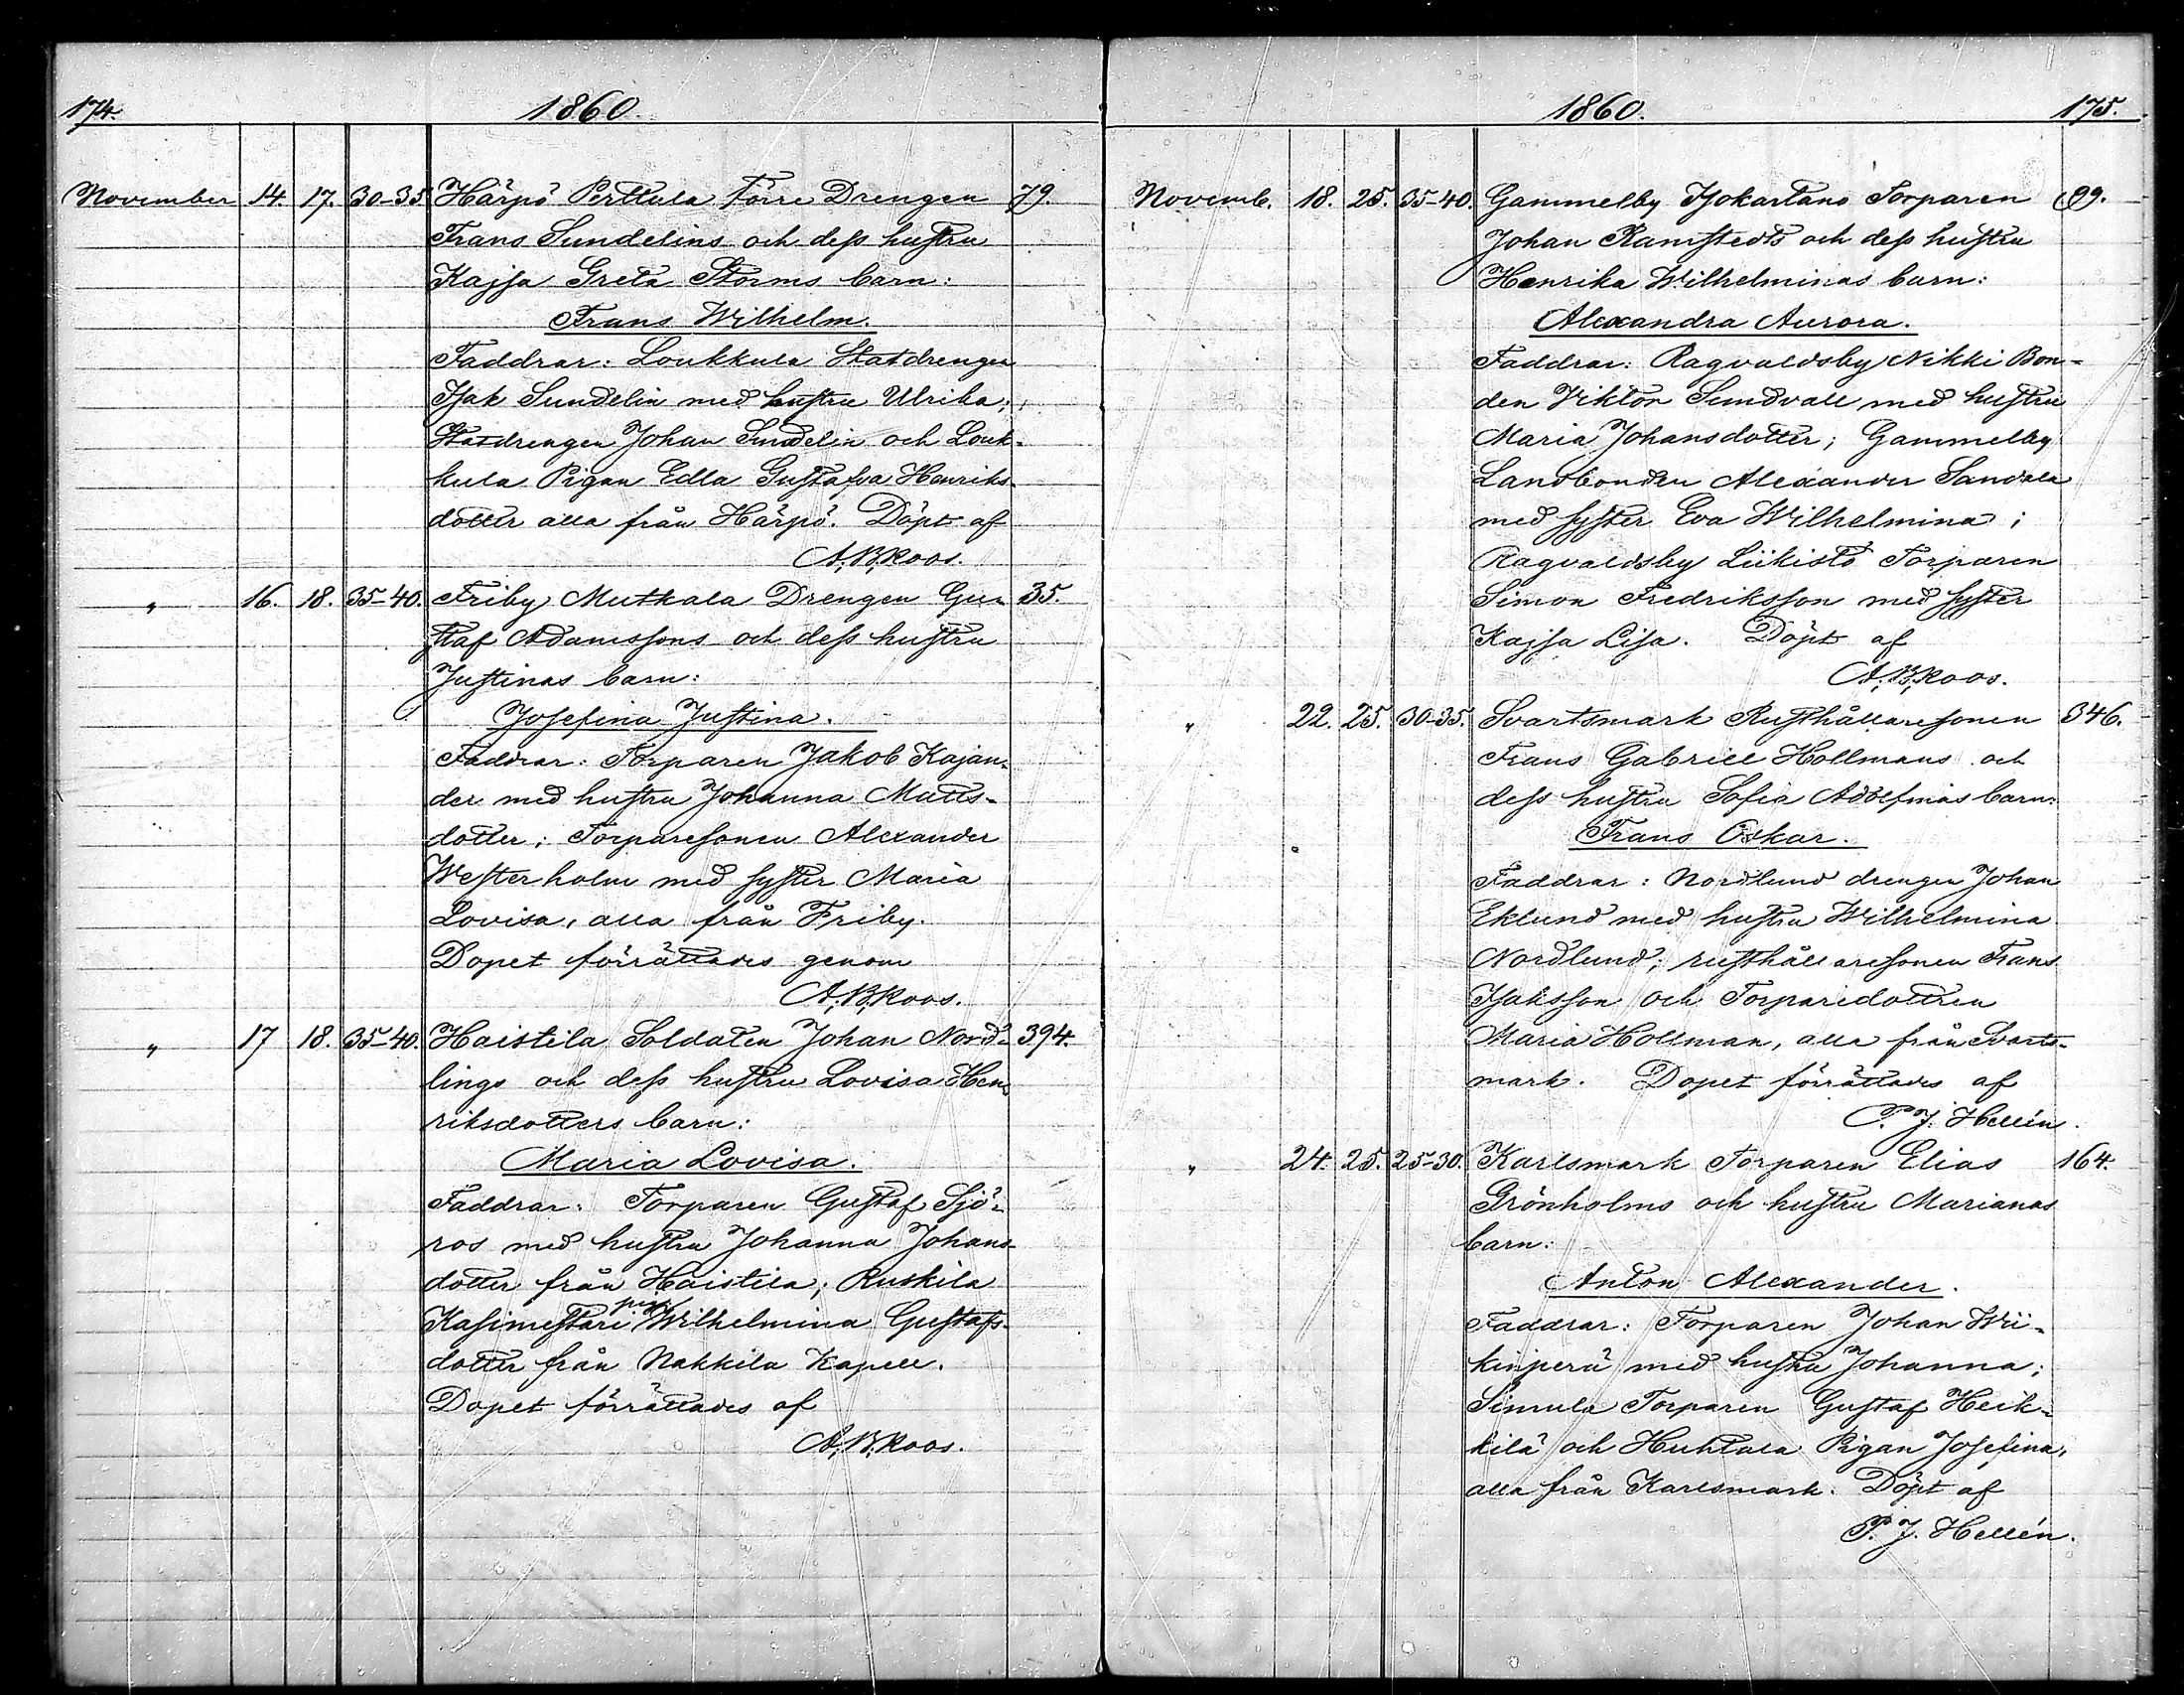 174.
1860.
November 14. 17. 30-35. Härpö Perttula Förre Drengen 79.
Frans Sundelins och dess hustru
Kajsa Greta Storms barn:
Frans Wilhelm.
Faddrar: Loukkula Statdrengen
Isak Sundelin med hustru Ulrika;
Statdrengen Johan Sundelin och Louk-
kula Pigan Edla Gustafva Henriks-
dotter alla från Härpö. Döpt af
A; B; Roos.
" 16. 18. 35-40. Friby Mutkala Drengen Gu- 35.
staf Adamssons och dess hustru
Justinas barn:
Josefina Justina.
Faddrar: Torparen Jakob Kajan-
der med hustru Johanna Matts-
dotter; Torparesonen Alexander
Westerholm med syster Maria
Lovisa, alla från Friby.
Dopet förrättades genom
A; B; Roos.
" 17 18. 35-40. Haistila Soldaten Johan Nord- 394.
lings och dess hustru Lovisa Hen-
riksdotters barn:
Maria Lovisa.
Faddrar: Torparen Gustaf Sjö-
ros med hustru Johanna Johans-
dotter från Haistila; Ruskila
Kasimestari pig. Wilhelmina Gustafs-
dotter från Nakkila Kapell.
Dopet förrättades af
A; B; Roos.
1860.
175.
Novemb. 18. 25. 35-40. Gammelby Isokartano Torparen 99.
Johan Ramstedts och dess hustru
Henrika Wilhelminas barn:
Alexandra Aurora.
Faddrar: Ragvaldsby Nikki Bon-
den Viktor Sundvall med hustru
Maria Johansdotter; Gammelby
Landbonden Alexander Sandala
med syster Eva Wilhelmina;
Ragvaldsby Liikistö Torparen
Simon Fredriksson med syster
Kajsa Lisa. Döpt af
A; B; Roos.
" 22. 25. 30-35. Svartsmark Rusthållaresonen 346.
Frans Gabriel Hollmans och
dess hustru Sofia Adolfinas barn:
Frans Oskar.
Faddrar: Nordlund drengen Johan
Eklund med hustru Wilhelmina
Nordlund; rusthållaresonen Frans
Isaksson och Torparedottren
Maria Hollman, alla från Svarts-
mark. Dopet förrättades af
P. J. Hellén.
" 24. 25. 25-30. Karlsmark Torparen Elias 164.
Grönholms och hustru Marianas
barn:
Anton Alexander.
Faddrar: Torparen Johan Wii-
kinperä med hustru Johanna;
Simula Torparen Gustaf Heik-
kilä och Huhtala Pigan Josefina,
alla från Karlsmark. Döpt af
P. J. Hellén.